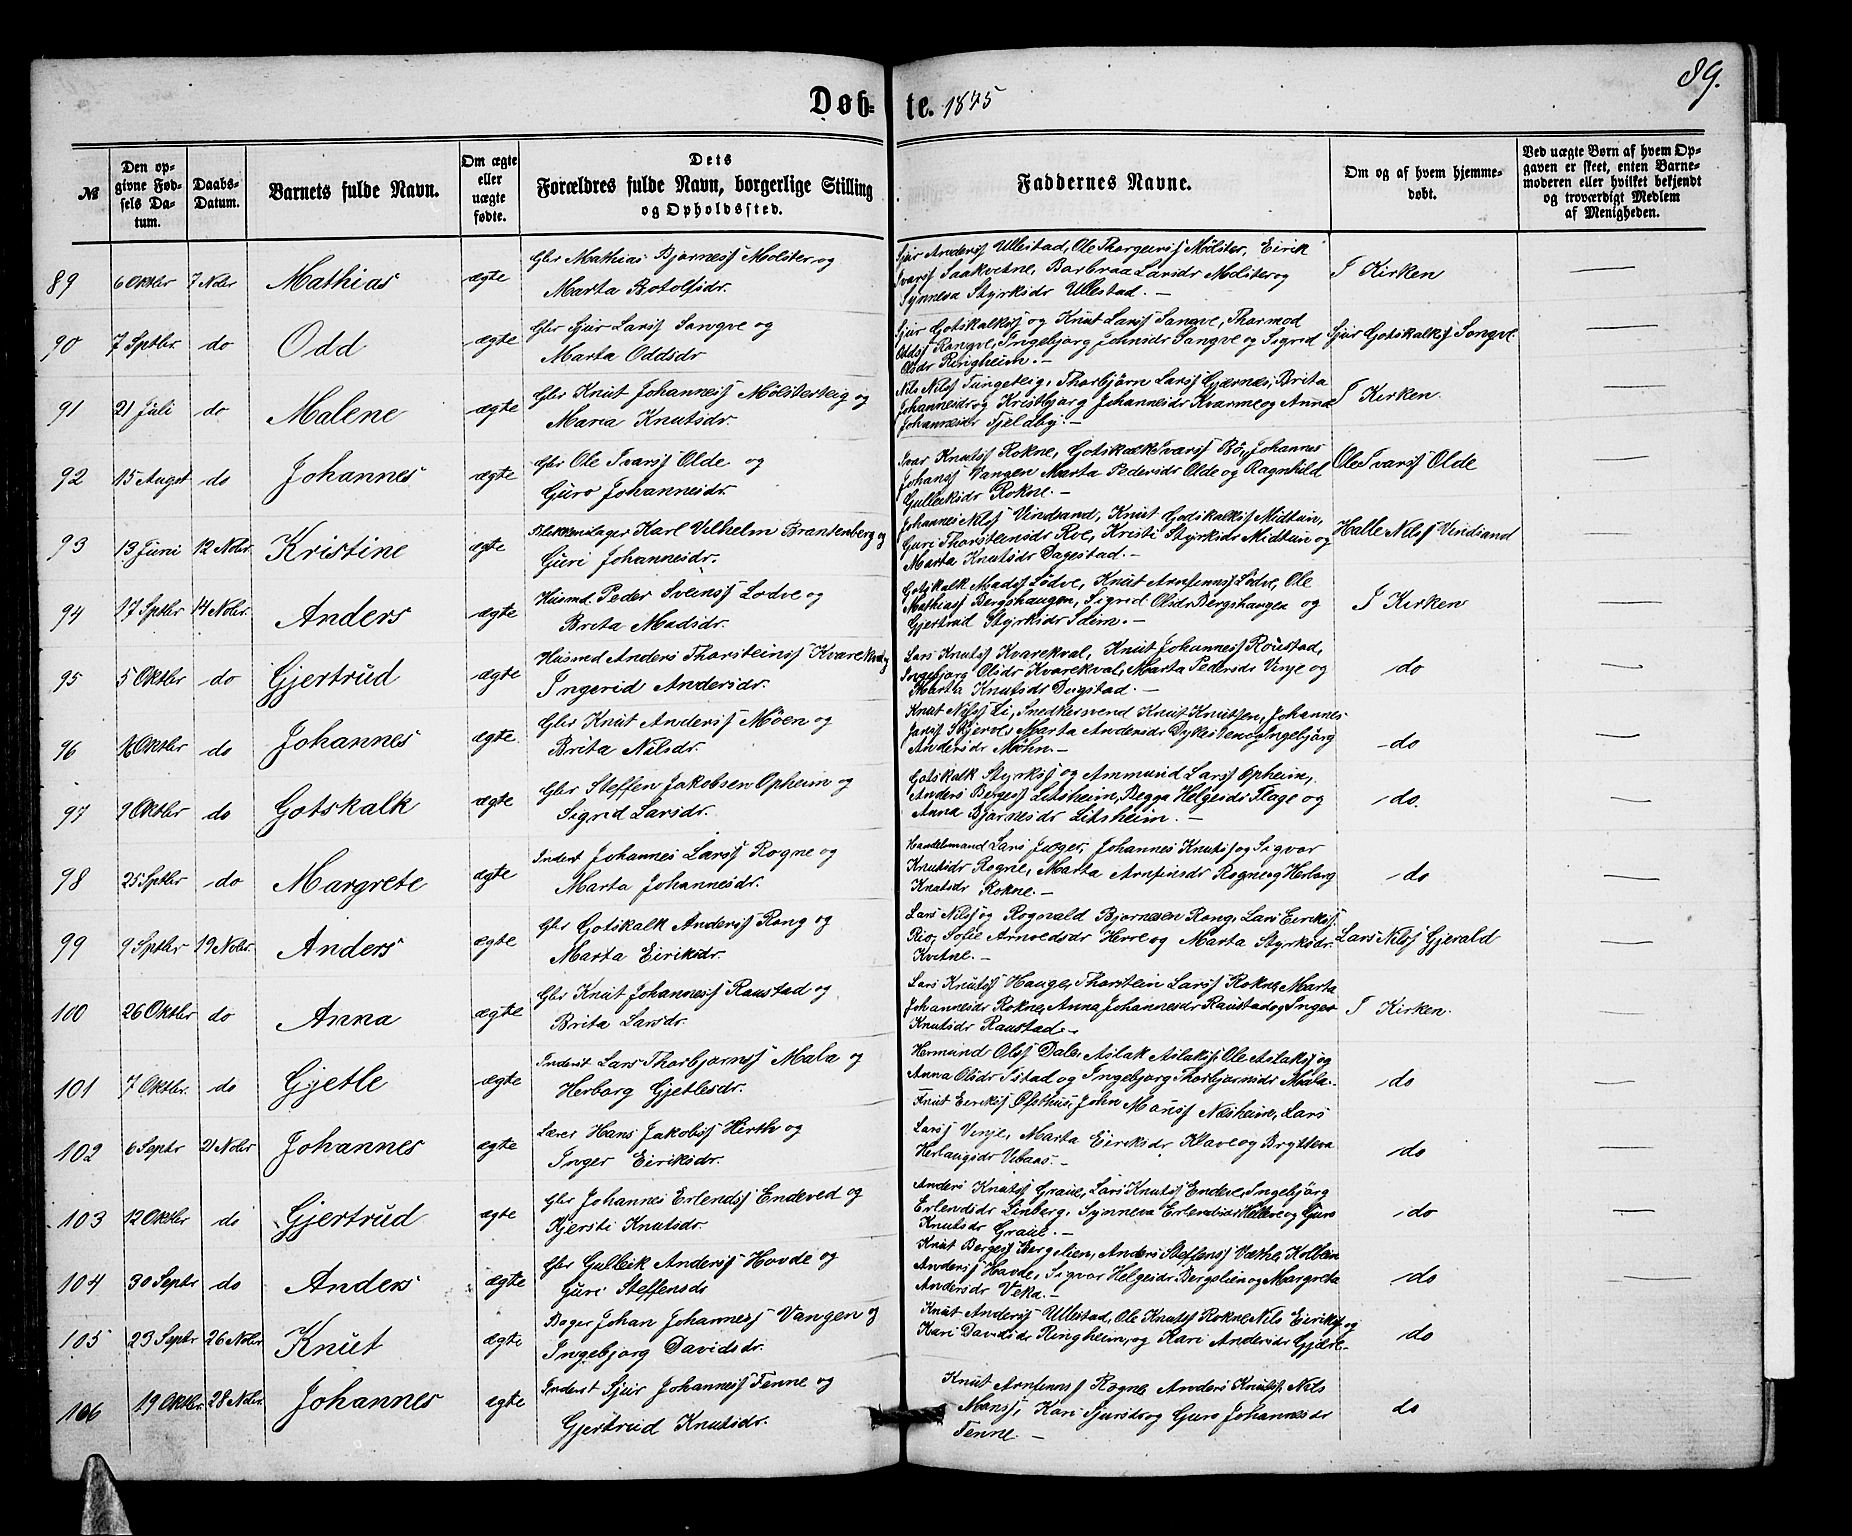 89.
Døb- te. 1875
№
Den op-
givne Fød-
sels Da-
tum.
Daabs-
Datum.
Barnets fulde Navn.
Om ægte
eller
uægte
fødte.
Dets
Forældres fulde Navn, borgerlige Stilling
og Opholdssted.
Faddernes Navne.
Om og af hvem hjemme-
døbt.
Ved uægte Børn af hvem Op-
gaven er skeet, enten Barne-
moderen eller hvilket bekjendt
og troværdigt Medlem
af Menigheden.
89 6 Oktbr 7 Nobr Mathias ægte Gbr Mathias Bjørness Mölster og
Marta Botolfsdr.
Sjur Anderss Ullestad, Ole Thorgeirss Mölster, Eirik
Ivarss Saakvitne, Barbraa Larsdr Mölster og
Synneva Styrksdr Ullestad. —
I Kirken
90 7 Sptbr do Odd ægte Gbr Sjur Larss Sangve og
Marta Oddsdr
Sjur Gotskalkss og Knut Larss Sangve, Thormod
Oddss Rongve, Ingebjørg Johnsdr Sangve og Sigrid
Olsdr Ringheim. —
Sjur Gotskalkss Songve.
91 21 Juli do Malene ægte Gbr Knut Johanness Mölsterteig og
Maria Knutsdr.
Nils Nilss Tungeteig, Thorbjörn Larss Gjernes, Brita
Johannesdr og Kristbjørg Johannesdr Kvarme og Anna
Johannesdr Fjeldby. —
I Kirken.
92 15 Augst do Johannes ægte Gbr Ole Ivarss Olde og
Guro Johannesdr.
Ivar Knutss Rokne, Gotskalk Ivarss Bö, Johannes
Johanss Vangen Marta Pedersdr Olde og Ragnhild
Gulleiksdr Rokne. —
Ole Ivarss Olde
93 13 Juni 12 Nobr. Kristine ægte Blikkenslager Karl Vilhelm Brantenberg og
Guri Johannesdr.
Johannes Nilss Vindsand, Knut Godskalkss Midtun,
Guri Thorsteinsdr Roe, Kristi Styrksdr Midtun og
Marta Knutsdr Dagestad. —
Halle Nilss Vindsand
94 17 Sptbr 14 Nobr. Anders ægte Husmd. Peder Sveinss Lödve og
Brita Madsdr.
Gotskalk Madss Lödve, Knut Arnfinnss Lödve, Ole
Mathiass Bergshaugen, Sigrid Olsdr Bergshaugen og
Gjertrud Styrksdr Idim. —
I Kirken
95 5 Oktbr do Gjertrud ægte Husmd Anders Thorsteinss Kvarekval og
Ingerid Andersdr.
Lars Knutss Kvarekval, Knut Johanness Roustad,
Ingebjørg Olsdr Kvarekval, Marta Pedersdr Vinje og
Marta Knutsdr Dugstad. —
do
96 16 Oktbr do Johannes ægte Gbr Knut Anderss Möen og
Brita Nilsdr.
Knut Nilss Li, Snedkersvend Knut Knutsen, Johannes
Marta Andersdr og Ingebjørg
Andersdr Möhn. —
do
97 9 Oktbr do Gotskalk ægte Gbr Steffen Jakobsen Opheim og
Sigrid Larsdr.
Gotskalk Styrkss og Ammund Larss Opheim,
Anders Bergess Litsheim, Begga Helgesdr Flage og
Anna Bjørnesdr Litsheim. —
do.
98 25 Sptbr do Margrete ægte Inderst Johannes Larss Rogne og
Marta Johannesdr.
Handelsmand Lars Jæger, Johannes Knutss og Sigvor
Knutsdr Rogne, Marta Arnfinsdr Rogne og Herborg
Knutsdr Rokne. —
do
99 9 Sptbr 19 Nobr. Anders ægte Gbr Gotskalk Anderss Rong og
Marta Eiriksdr.
Lars Nilss og Rognald Bjørnesen Rong, Lars Eirikss
Rio, Sofie Arnoldsdr Herre og Marta Styrksdr
Kvitne. —
Lars Nilss Gjerald
100 26 Oktbr do Anna ægte Gbr Knut Johanness Raustad og
Brita Larsdr.
Lars Knutss Hauge, Thorstein Larss Rokne, Marta
Johannesdr Rokne, Anna Johannesdr Raustad og Inger
Knutsdr Raustad. —
I Kirken.
101 7 Oktbr. do Gjetle ægte Inderst Lars Thorbjørnss Mala og
Herborg Gjetlesdr.
Hermund Olss Dale, Aslak Aslakss, Ole Aslakss og
Anna Olsdr Istad og Ingebjørg Thorbjørnsdr Mala.
do
102 6 Septr 21 Nobr Johannes ægte Lærer Hans Jakobss Hirth og
Inger Eiriksdr.
Knut Eirikss Ofsthus, John Monss Næsheim, Lars
Larss Vinje, Marta Eiriksdr Klave og Brytteva
Herlaugsdr Vibaas. —
do
103 12 Oktbr do Gjertrud ægte Gbr Johannes Erlendss Endeved og
Kjersti Knutsdr.
Anders Knutss Graue, Lars Knutss Endeve, Ingebjörg
Erlendsdr Linberg, Synneva Erlendsdr Helleve og Guro
Knutsdr Graue. —
do
104 30 Septr do Anders ægte Gbr Gulleik Anderss Hovde og
Guri Steffensdr
Knut Bergess Bergslien, Anders Steffenss Væthe, Kolbein
Anderss Hovde, Sigvor Helgesdr Bergslien og Margreta
Andersdr Veka. —
do
105 23 Septr 26 Nobr. Knut ægte Bager Johan Johanness Vangen og
Ingebjorg Davidsdr.
Knut Anderss Ullestad, Ole Knutss Rokne, Nils Eirikss og
Kari Davidsdr Ringheim, og Kari Andersdr Gjære.
do
106 19 Oktbr. 28 Nobr. Johannes ægte Inderst Sjur Johanness Tenne og
Gjertrud Knutsdr.
Knut Arnfinnss Rogne, Anders Knutss, Nils
Monss, Kari Sjursdr og Guro Johannesdr
Tenne. —
do